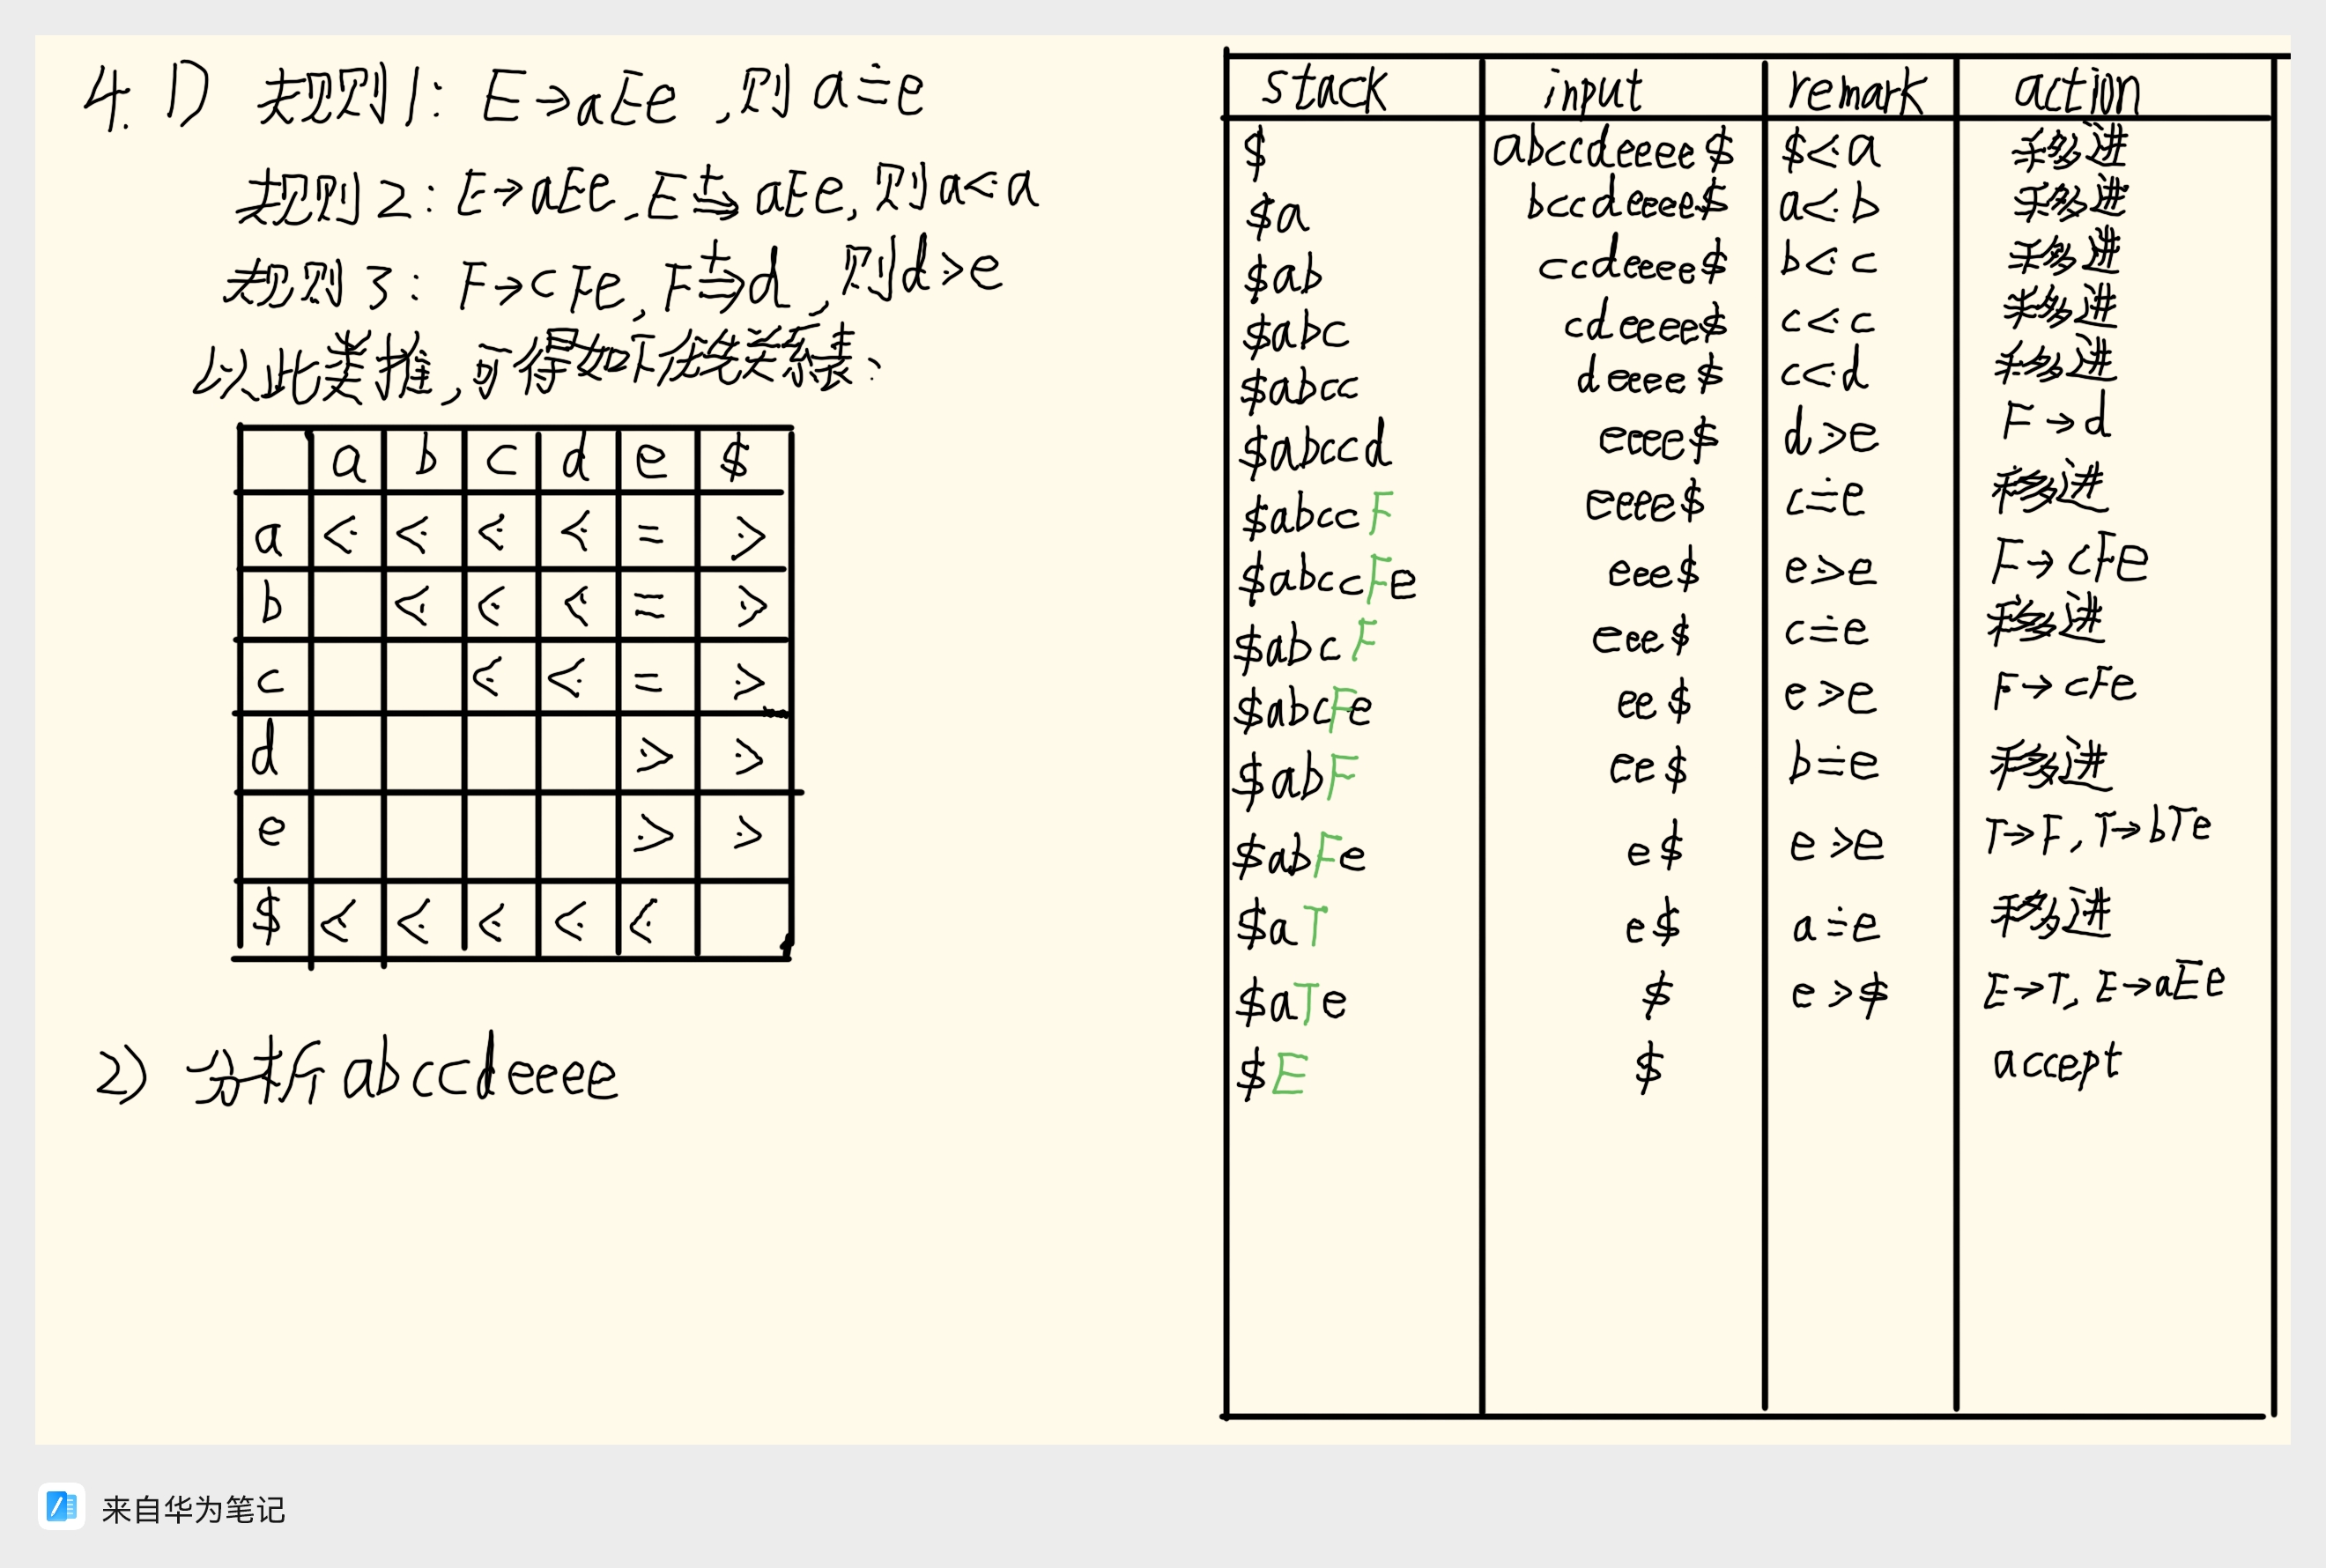 4. 1) 规则1: E→aEe, 则 a≐e
规则2: E→aEe, E⇒⁺aEe, 则 a⋖a
规则3: F→cFe, F⇒⁺d, 则 d⋗e
以此类推, 可得如下优先关系表:
a b c d e $
a ⋖ ⋖ ⋖ ⋖ = ⋗
b ⋖ ⋖ ⋖ = ⋗
c ⋖ ⋖ = ⋗
d ⋗ ⋗
e ⋗ ⋗
$ ⋖ ⋖ ⋖ ⋖ ⋖
2) 分析 abccdeeee
stack input remark action
$ abccdeeee$ $⋖a 移进
$a bccdeeee$ a⋖b 移进
$ab ccdeeee$ b⋖c 移进
$abc cdeeee$ c⋖c 移进
$abcc deeee$ c⋖d 移进
$abccd eeee$ d⋗e F→d
$abccF eeee$ c≐e 移进
$abccFe eee$ e⋗e F→cFe
$abcF eee$ c≐e 移进
$abcFe ee$ e⋗e F→cFe
$abF ee$ b≐e 移进
$abFe e$ e⋗e T→F, T→bTe
$aT e$ a≐e 移进
$aTe $ e⋗$ E→T, E→aEe
$E $ accept
来自华为笔记